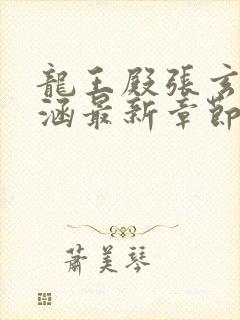 龍王殿張玄
涵最新章節
蕭美琴